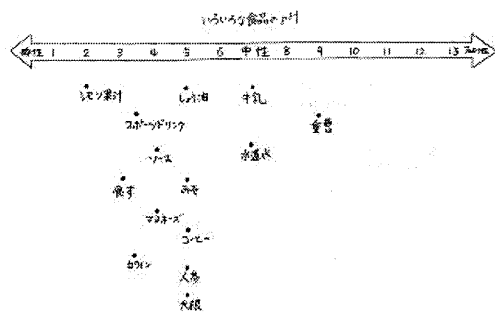 いろいろな食品のpH
酸性 1 2 3 4 5 6 中性 8 9 10 11 12 13 アルカリ性
レモン果汁 しょう油 牛乳
スポーツドリンク 重曹
ソース 水道水
食す みそ
マヨネーズ
コーヒー
白ワイン
人参
大根